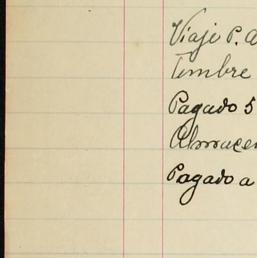 Viaje P. A
Timbre
Pagado 5
Almacen
Pagado a